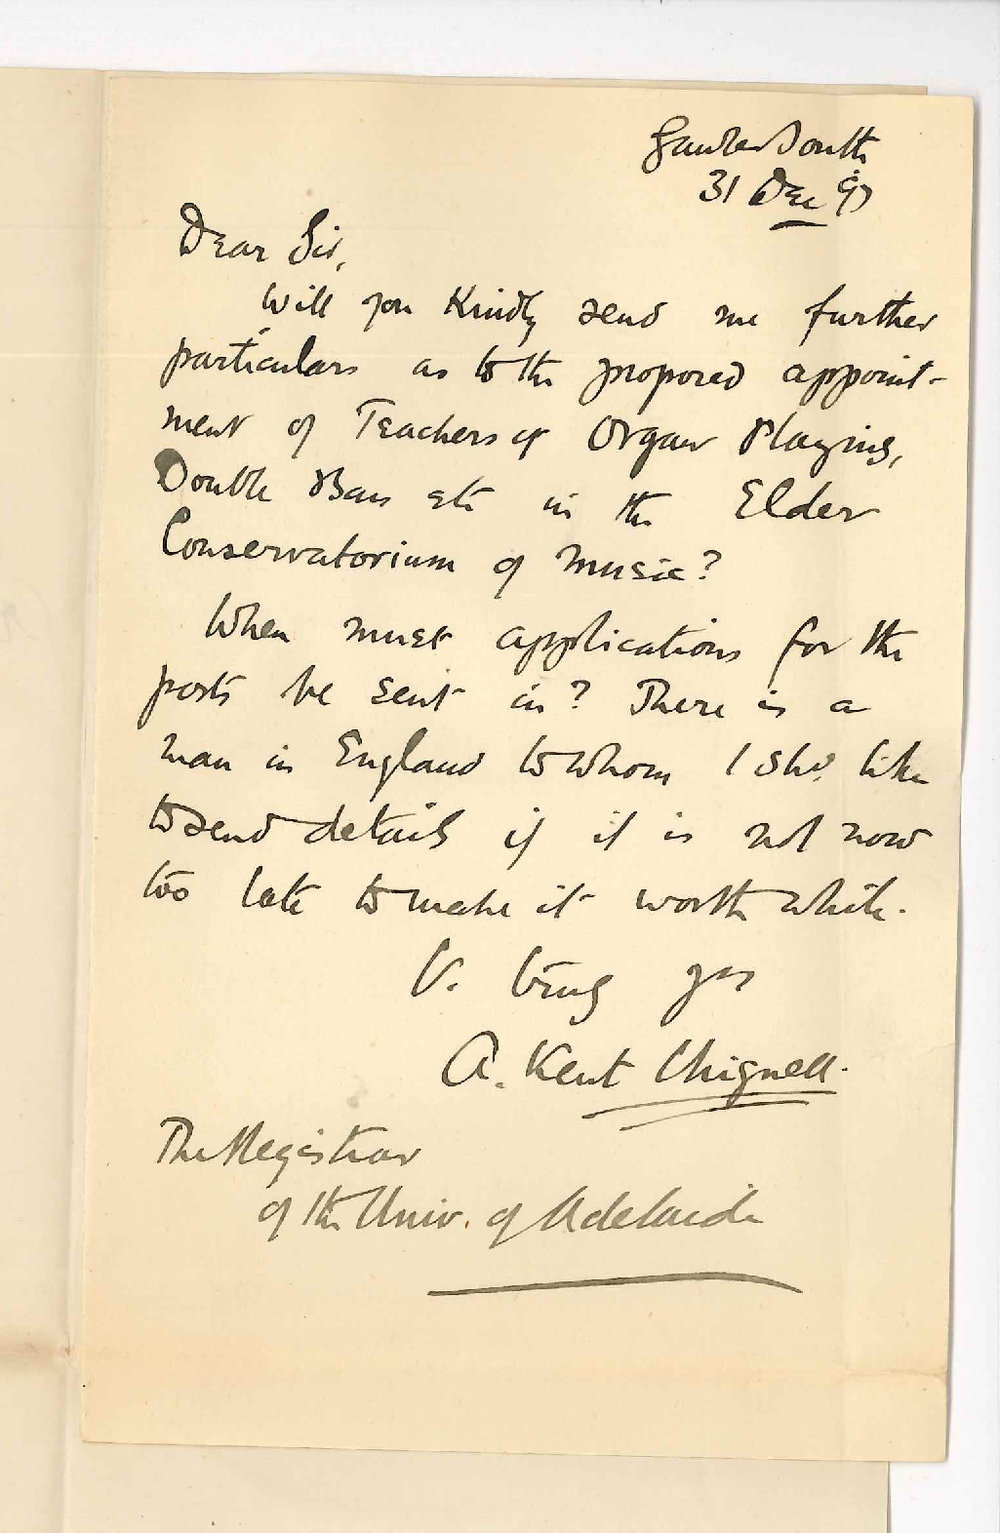 Gawler South
31 Dec 97
Dear Sir,
Will you Kindly send me further
particulars as to the proposed appoint-
ment of Teachers of Organ Playing,
Double Bass etc in the Elder
Conservatorium of Music?
When must applications for the
posts be sent in? There is a
man in England to whom I shd. like
to send details if it is not now
too late to make it worth while.
V. truly yrs
A. Kent Chignell.
The Registrar
of the Univ. of Adelaide